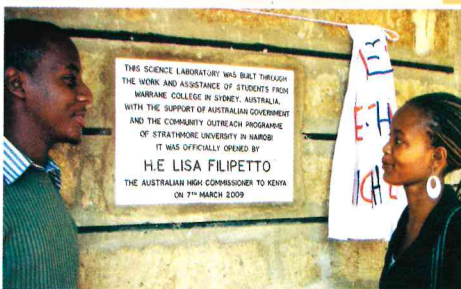 THIS SCIENCE LABORATORY WAS BUILT THROUGH
THE WORK AND ASSISTANCE OF STUDENTS FROM
WARRANE COLLEGE IN SYDNEY, AUSTRALIA,
WITH THE SUPPORT OF AUSTRALIAN GOVERNMENT
AND THE COMMUNITY OUTREACH PROGRAMME
OF STRATHMORE UNVERSITY IN NAIROBI
IT WAS OFFICIALLY OPENED BY
H.E LISA FILIPETTO
THE AUSTRALIAN HIGH COMMISSIONER TO KENYA
ON 7TH MARCH 2009